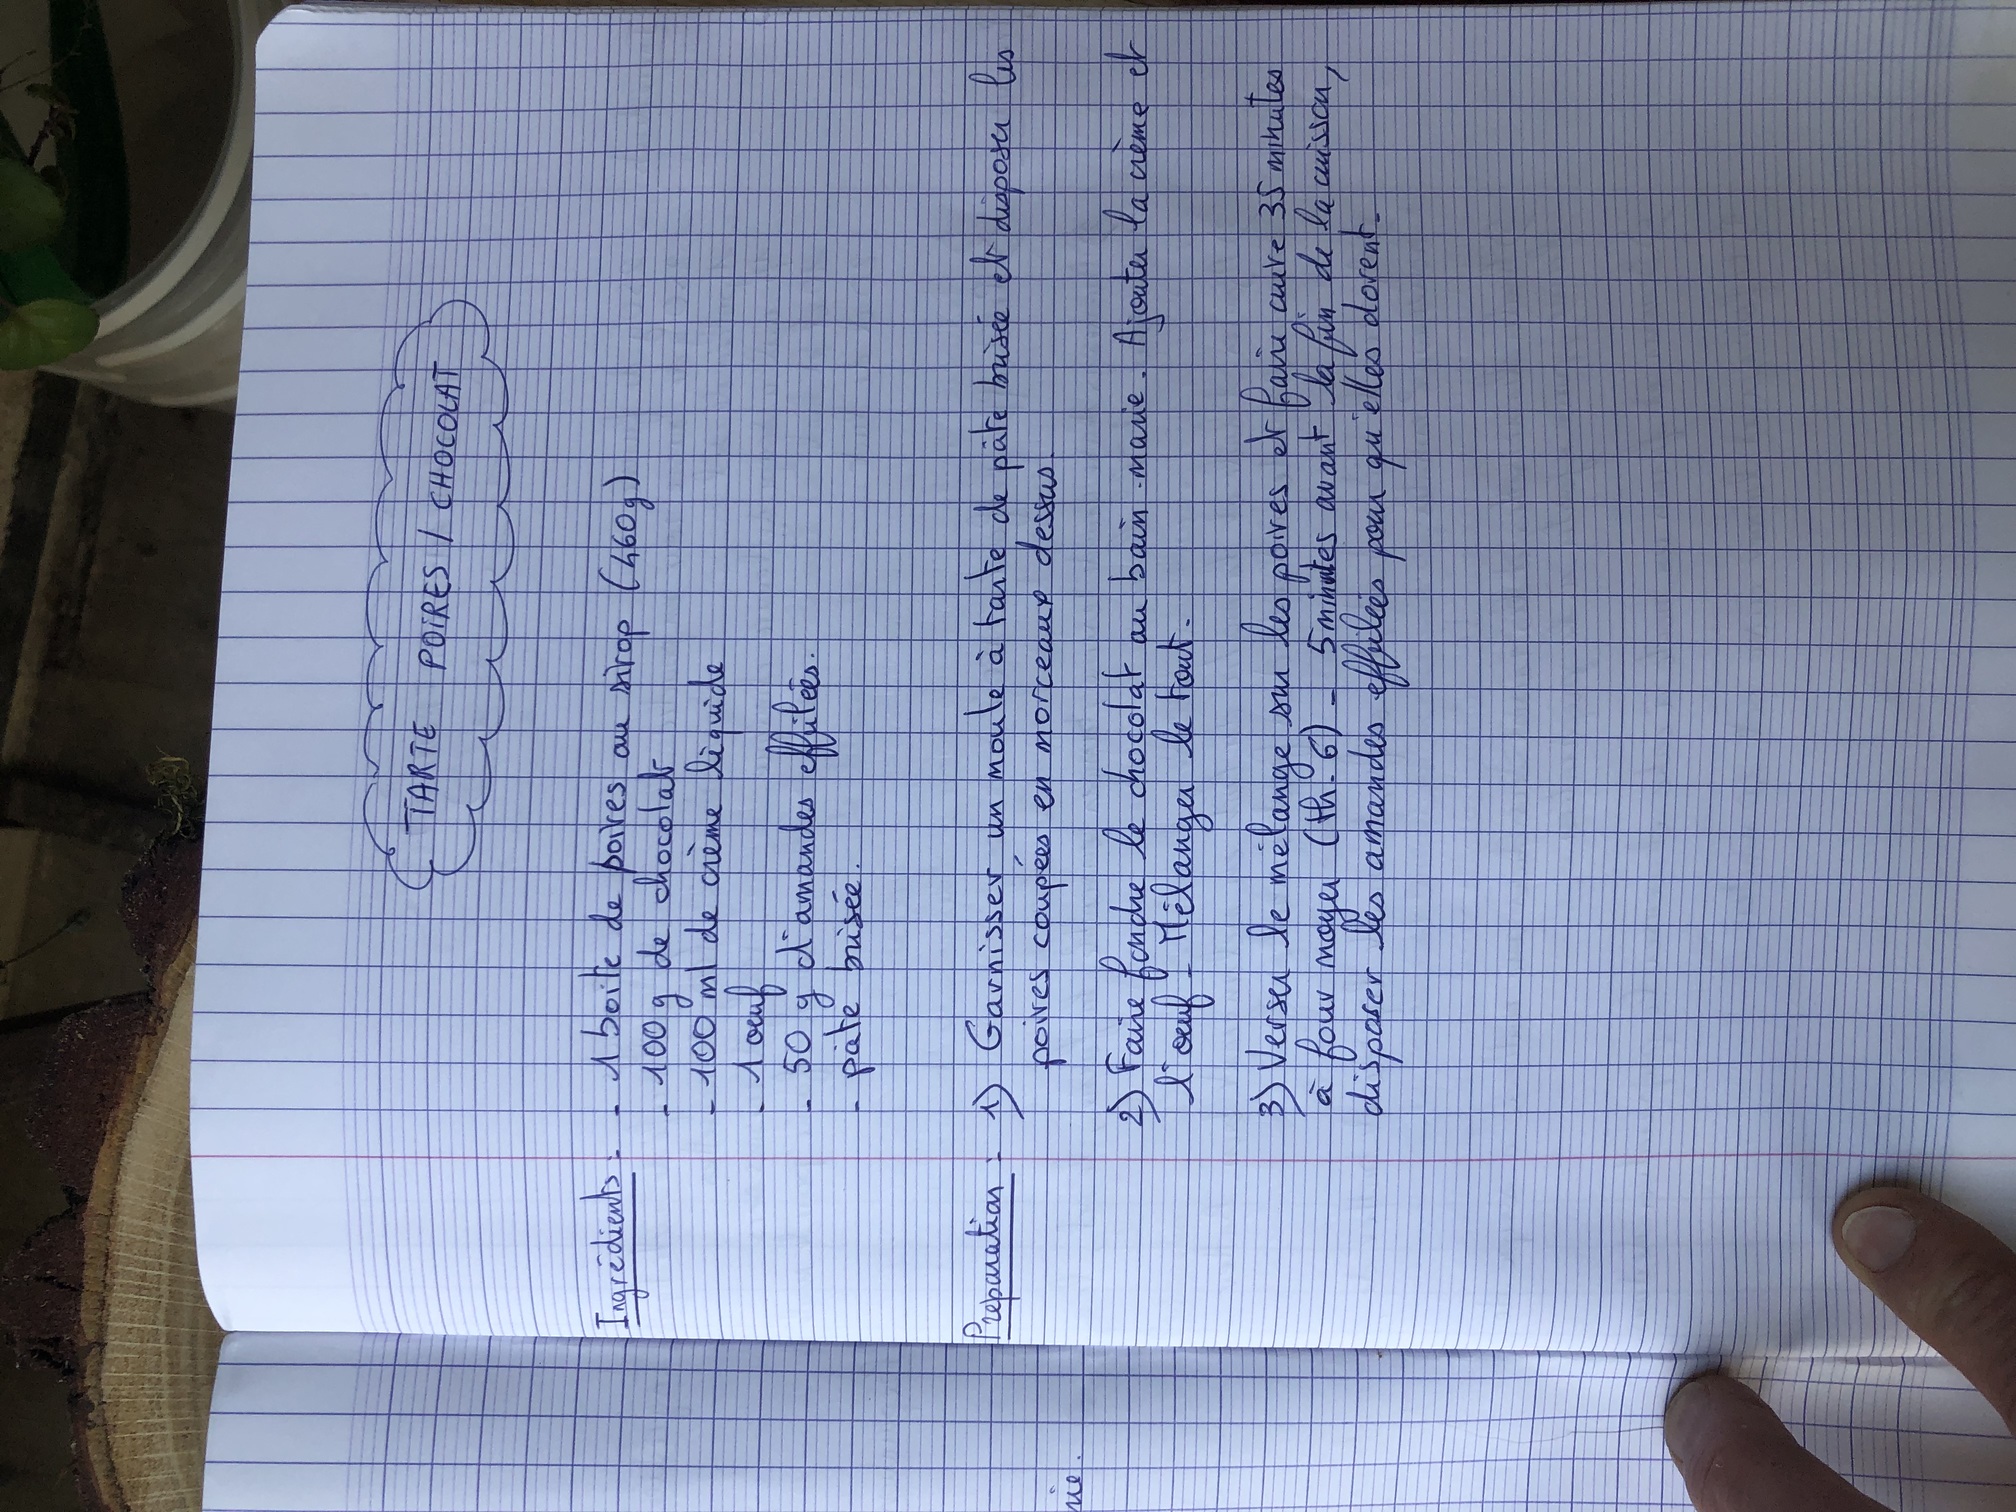 TARTE POIRES / CHOCOLAT
Ingrédients : - 1 boite de poires au sirop (460g)
- 100 g de chocolat
- 100 ml de crème liquide
- 1 oeuf
- 50 g d'amandes effilées.
- pâte brisée.
Préparation : 1) Garnisser un moule à tarte de pâte brisée et disposer les
poires coupées en morceaux dessus.
2) Faire fondre le chocolat au bain-marie. Ajouter la crème et
l'oeuf - Mélanger le tout.
3) Verser le mélange sur les poires et faire cuire 35 minutes
à four moyen (th. 6) - 5 minutes avant la fin de la cuisson,
disposer les amandes effilées pour qu'elles dorent.